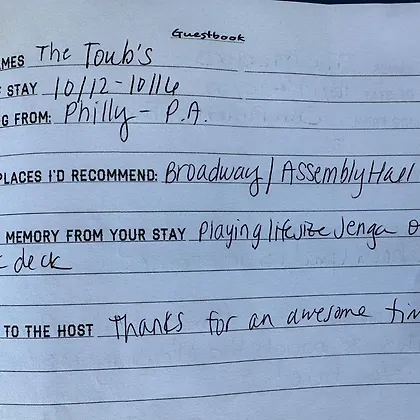 Guestbook
AMES The Toub's
STAY 10/12-10/16
G FROM: Philly - P.A.
PLACES I'D RECOMMEND: Broadway / Assembly Hall
MEMORY FROM YOUR STAY Playing lifesize Jenga o
deck
TO THE HOST Thanks for an awesome tim